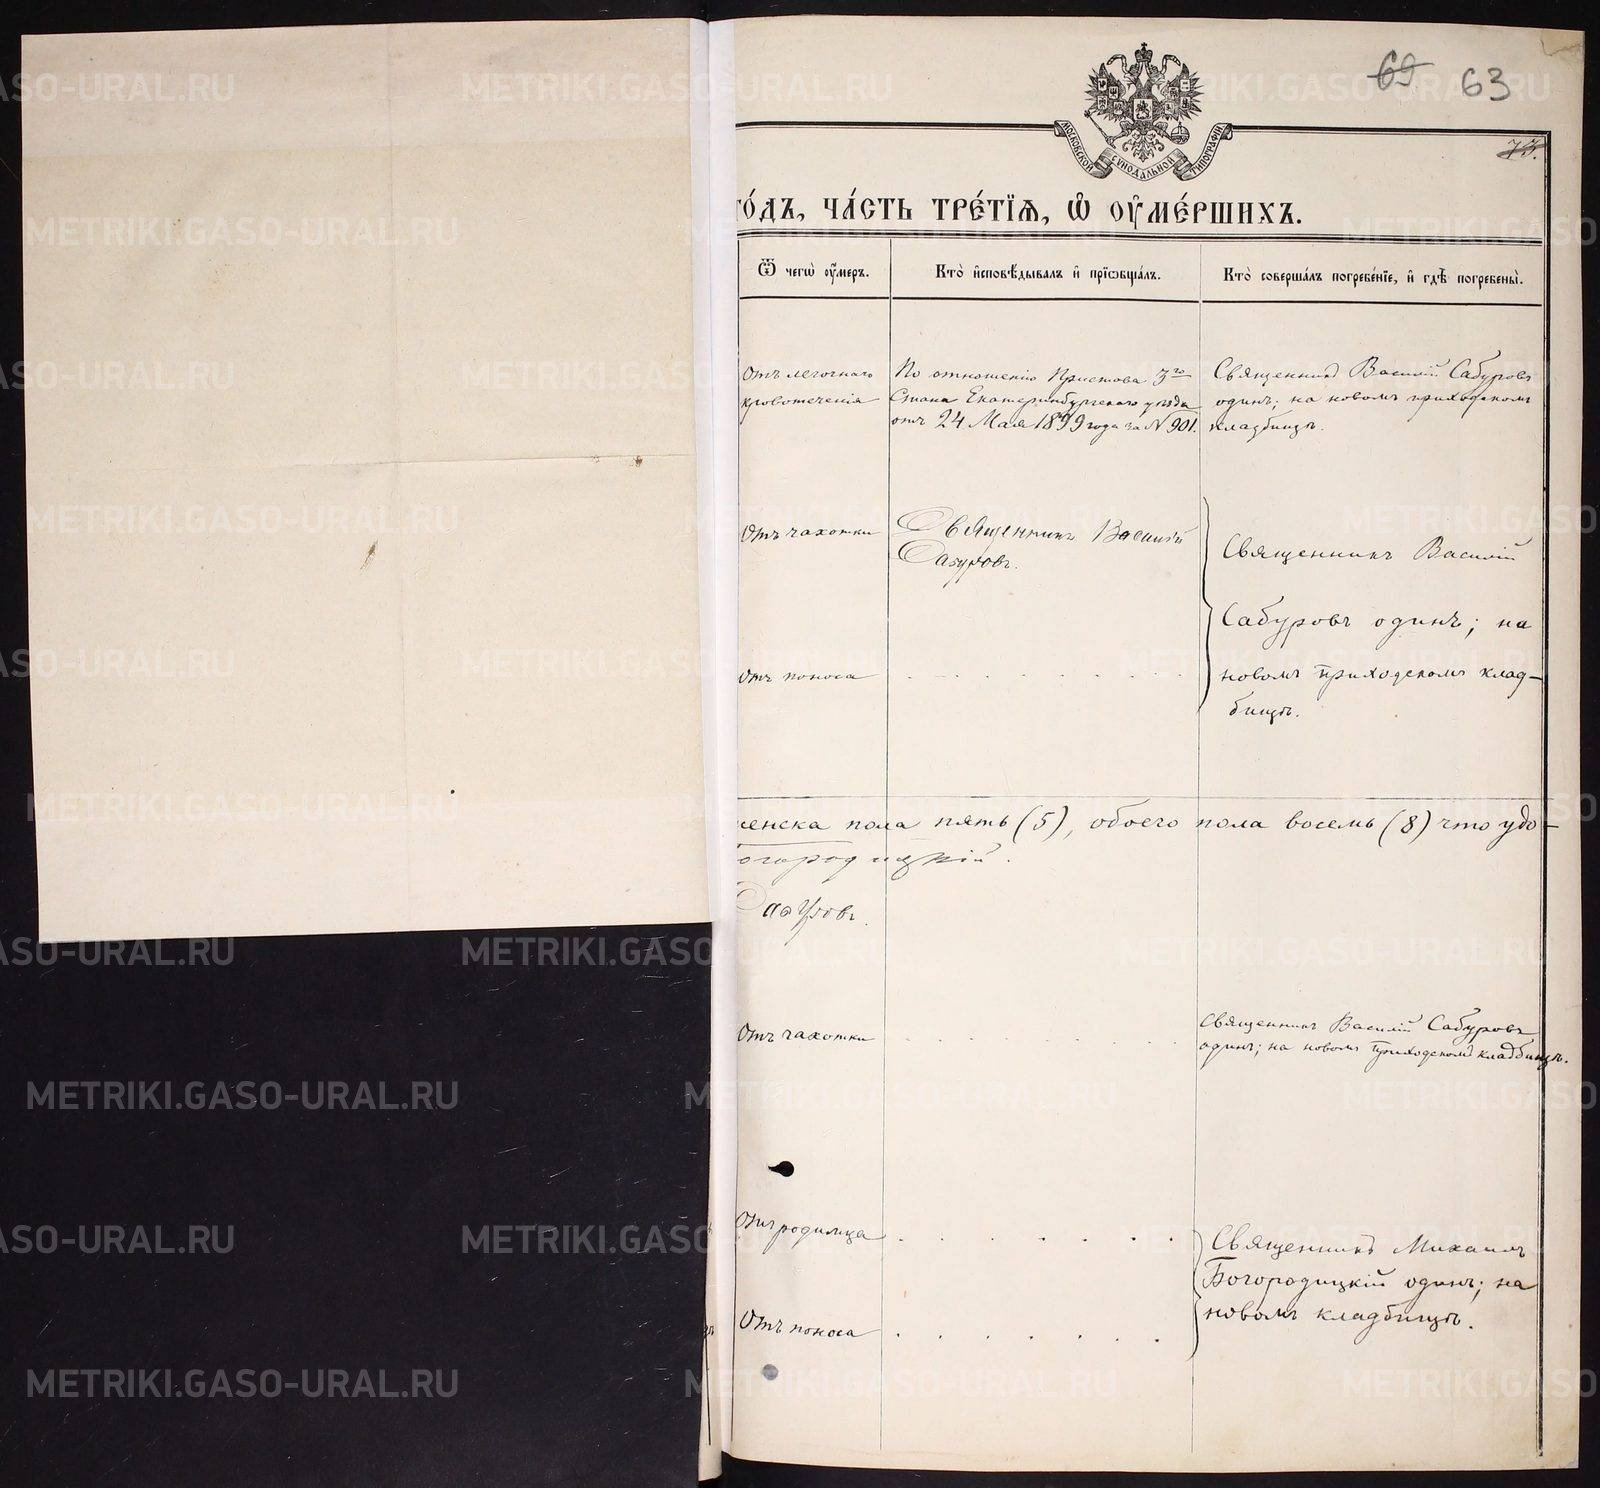 69 63
МОСКОВСКОЙ СѴНОДАЛЬНОЙ ТИПОГРАФІИ
73.
го́дъ, ча́сть тре́тїѧ, ѡ҆ оу҆ме́ршихъ.
Ѿ чегѡ̀ оу҆́меръ.
Кто̀ и҆сповѣ́дывалъ и҆ прїѡбща́лъ.
Кто̀ соверша́лъ погребе́нїе, и҆ гдѣ̀ погребены̀.
Отъ легочнаго
кровотеченія
По отношенію Пристава 3го
Стана Екатеринбургскаго уѣзда
отъ 24 Мая 1899 года за № 901.
Священникъ Василій Сабуровъ
одинъ; на новомъ приходскомъ
кладбищѣ.
Отъ чахотки
Священникъ Василій
Сабуровъ.
Священникъ Василій
Сабуровъ одинъ; на
новомъ приходскомъ клад-
бищѣ.
Отъ поноса
женска пола пять (5), обоего пола восемь (8) что удо-
Богородицкій.
Сабуровъ.
Отъ чахотки
Священникъ Василій Сабуровъ
одинъ; на новомъ приходскомъ кладбищѣ.
Отъ родимца
Священникъ Михаилъ
Богородицкій одинъ; на
новомъ кладбищѣ.
Отъ поноса
METRIKI.GASO-URAL.RU